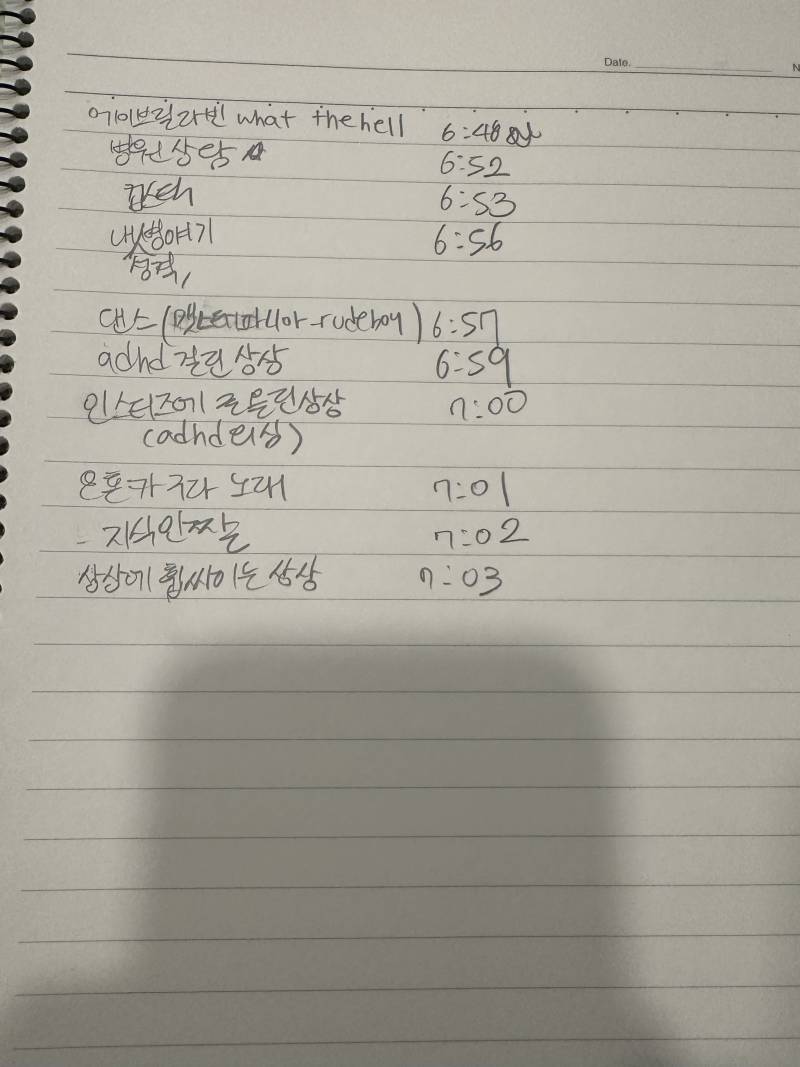 Date.
N
에이브릴라빈 what the hell 6:48
병원상담 6:52
컴스터 6:53
내성병얘기 6:56
성격,
댄스( 파니아-rudeboy) 6:57
adhd 걸린 상상 6:59
인스티즈에 글올린상상 7:00
(adhd의심)
노래 7:01
지식인 짜는 7:02
상상에 휩싸이는 상상 7:03